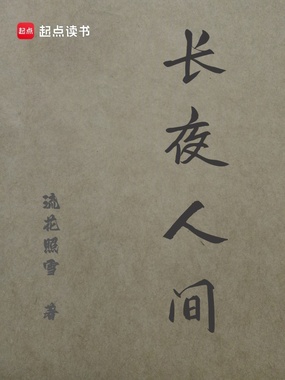 起点 起点读书
长夜人间
琉花照雪 著